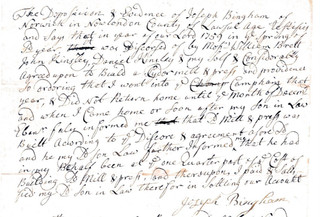 The Deposition & Evidence of Joseph Bingham of
Norwich in New London County & Lawful Age Testifies
and Say that in year of our Lord 1759 in ye Spring of
Sd year was Discorsed of by Mr William Brett
John Kinsley Daniel Kinsley & my Self & Considerably
Agreed upon to Build a Cydermill & press In providence
So ordering that I went into ye Campaine that
year, & Did Not Return home untill ye Month of
and when I Come home or Soon after my Son in Law
informed me that Sd Mill & press was
Built According to ye Discors & agreement afore Sd
and he my Sd Son Law further Informed that he had
in my been at ye one quarter part of ye Cost of
Building Sd Mill & press and thereupon I paid & Satis
fied my Sd Son in Law therefor in Setling our Accounts
Joseph Bingham